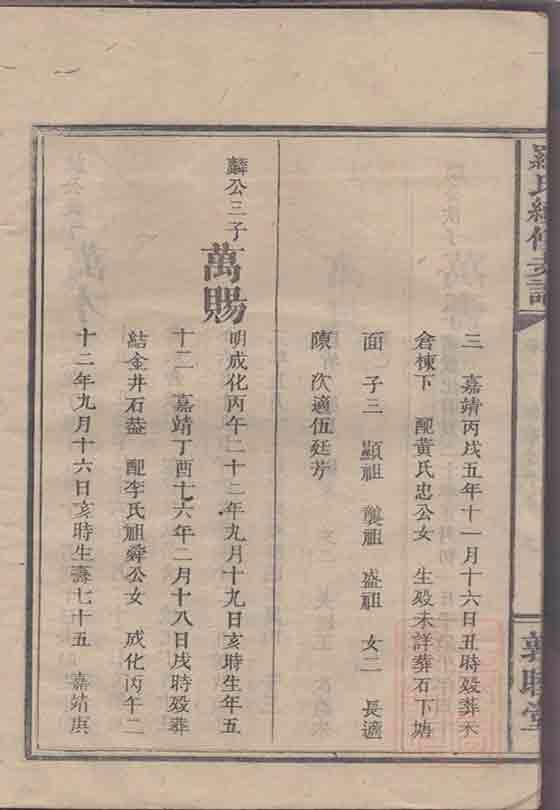 羅氏續修支譜
敦睦堂
三　嘉靖丙戌五年十一月十六日丑時殁葬木
倉棟下　配黃氏忠公女　生殁未詳葬石下塘
面　子三　顯祖　龔祖　盛祖　女二　長適
陳　次適伍廷芳
麟公三子
萬賜
明成化丙午二十二年九月十九日亥時生年五
十二　嘉靖丁酉十六年二月十八日戌時殁葬
結金井石葢　配李氏祖舜公女　成化丙午二
十二年九月十六日亥時生壽七十五　嘉靖庚